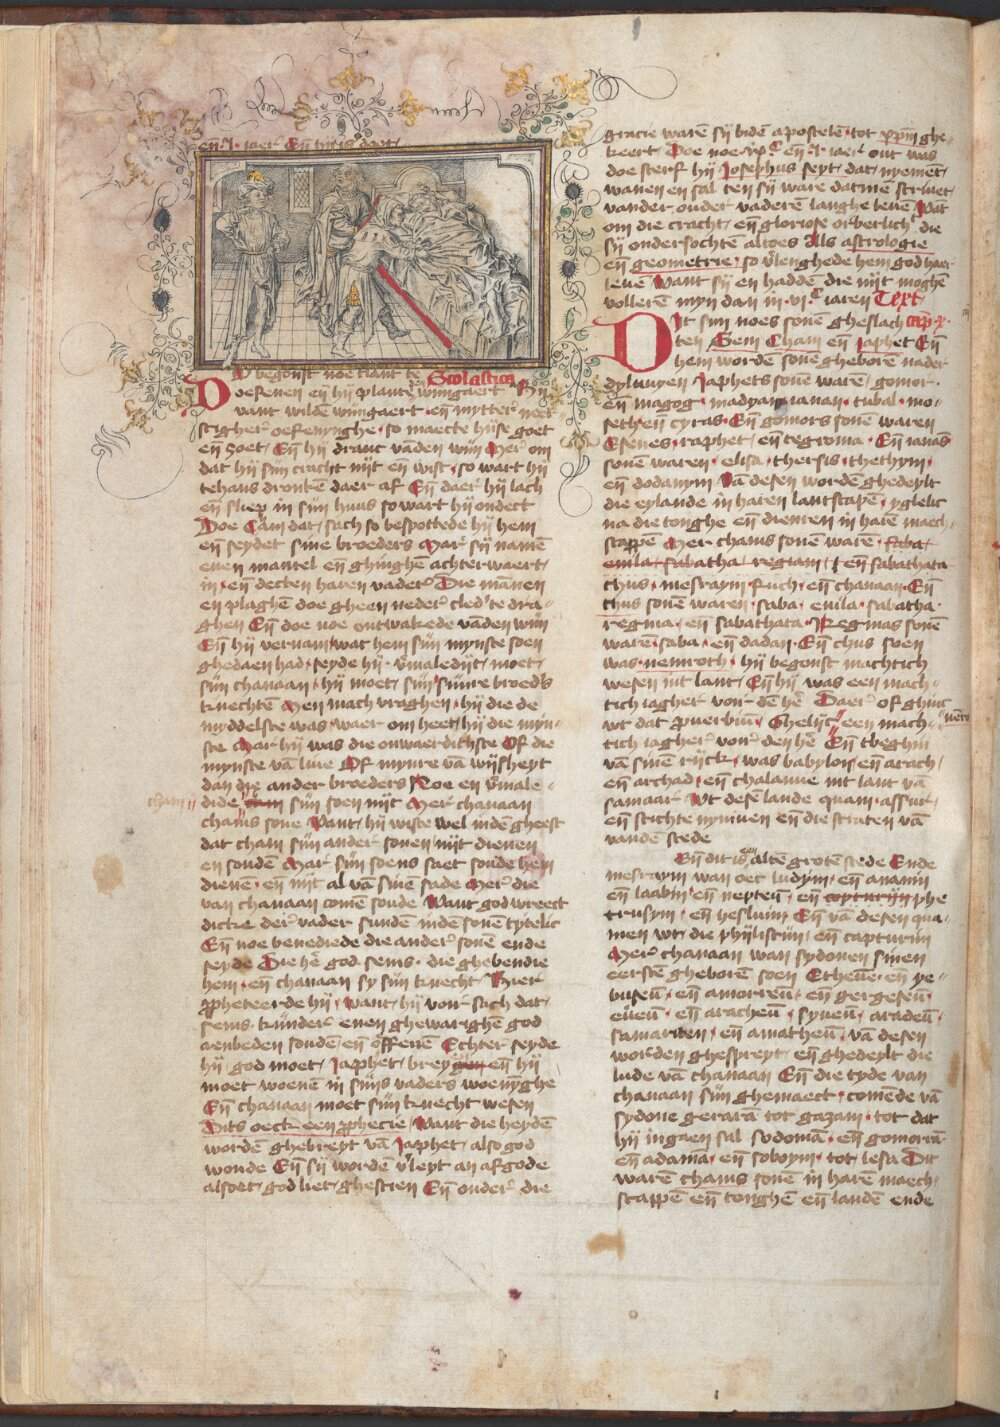 eñ .l. iaer Eñ hi is doet
Do begonst noe tlant te Scolastica
oefenen eñ hij plante wijngaert Hij
vant wilde wijngaert eñ mytter neer
stigher oefenynghe so maecte hijse goet
eñ zoet Eñ hij dranc vāden wijn Mer om
dat hij sijn cracht nijt eñ wist so wart hij
tehans droncken daer af Eñ daer hij lach
eñ sliep in sijn huus so wart hij ondect
Doe Cam dat sach so bespottede hij hem
eñ seydet sine broeders Mar sij namē
enen mantel eñ ghinghē achterwaert
in eñ decten haren vader Die mānen
en plaghē doe gheen neder cleder te dra
ghen Eñ doe noe ontwakede vāden wijn
Eñ hij vernam wat hem sijn mynste soen
ghedaen had seyde hij vmaledijt moet
sijn chanaan hij moet sijn sijnre broeders
knechten Men mach vraghen hij die de
myddelste was waer om heet hij die myn
ste Mar hij was die onwaerdichste Of die
mynste vā live Of mynre vā wijsheyt
dan die ander broeders Noe en vmale
cham dide sijn soen nijt Mer chanaan
chams sone Want hij wiste wel indē gheest
dat cham sijn ander sonen nijt dienen
en soudē Mar sijn soens saet soude hem
dienē eñ nijt al vā sinē sade Mer die
van chanaan comē soude Want god wreect
dicke der vader sundē indē sonē tytelic
Eñ noe benediede die ander sonē ende
seyde Die hē god sems die ghebendie
hem eñ chanaan sy sijn knecht Hier
propheteerde hij want hij voir sach dat
sems kijnder enen ghewarighē god
aenbeden soudē eñ offenē Echter seyde
hij god moet Japhet brey eñ hij
moet woenē in sijns vaders woenyghe
Eñ chanaan moet sijn knecht wesen
Dits oeck een prophecie Want die heydē
wordē ghebreyt vā Japhet also god
wonde Eñ sij wordē vleyt an afgode
alsoet god liet ghescien Eñ onder die
gracie warē sij bidē apostelē tot ghe
keert Doe noe eñ .l. iaer out was
doe sterf hij Josephus seyt dat nyemēt
wanen en sal ten sij ware datmē scrivet
vander ouder vaderē langhe levē Wat
om die cracht eñ gloriose orberlicheit die
sij ondersochtē altoes Als astrologie
eñ geometrie so vlenghede hem god haer
levē Want sij en haddē die nijt moghē
vollerē myn dan in .vi.c iaren Text
Dit sijn noes sonē gheslach cap .x.
ten Sem Cham eñ Japhet Eñ
hem wordē sonē gheborē nader
dyluvyen Japhets sonē warē gomor
eñ magog madyan ianan tubal mo
seth eñ cyras Eñ gomors sonē waren
Esenes raphet eñ tegroma Eñ ianās
sonē waren elisa thersis thethym
eñ dodanym Vā desen wordē ghedeylt
die eylande in haren lantscapē yghelic
na die tonghe eñ dienten in harē maech
scappē Mer chams sonē warē saba
euila sabatha regiam eñ sabathata
chus mesraym Fuch eñ chanaan Eñ
chus sonē waren saba euila sabatha
regma eñ sabathata Regmas sonē
warē saba eñ dadan Eñ chus soen
was nemroth hij begonst machtich
wesen int lant Eñ hij was een mach
tich iagher voir dē hē Daer of ghinc
wt dat proverbiū Ghelijc een mach
tich iagher voir den hē Eñ tbeghin
vā sinē rijck was babylon eñ arach
eñ archad eñ chalanne int lant vā
sanaar Wt desē lande quam assur
eñ stichte nyniven eñ die straten vā
vanden stede
Eñ dit is een altē grotē stede Ende
mesraym wan oec ludym eñ anamin
eñ laabin eñ neptem eñ phe
trusym eñ hesluim Eñ vā desen qua
men wt die phylistijn eñ capturijn
Mer chanaan wan sydonen sinen
eerstē gheborē soen Etheuē eñ ye
buseū eñ amorreū eñ gergeseū
eueū eñ aracheū syneū aradeū
samariten eñ amatheū vā desen
worden ghespreyt eñ ghedeylt die
lude vā chanaan Eñ die tyde van
chanaan sijn ghemaect comēde vā
sydone gerarā tot gazam tot dat
hij ingaen sal sodomā eñ gomorrā
eñ adama eñ soboym tot lesa Dit
warē chams sonē in harē maech
scappē eñ tonghē eñ landē ende